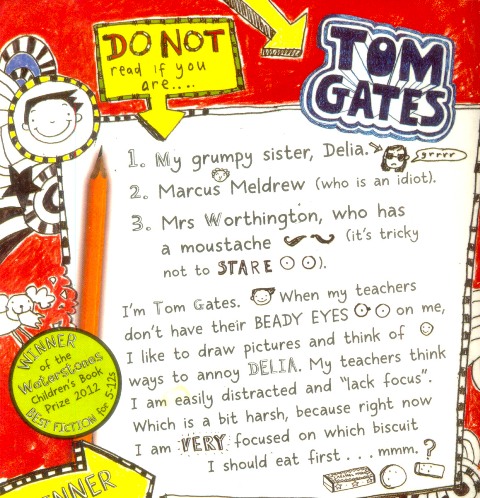 DO NOT
read if you
are....
TOM
GATES
1. My grumpy sister, Delia.
grrrr
2. Marcus Meldrew (who is an idiot).
3. Mrs Worthington, who has
a moustache (it's tricky
not to STARE).
I'm Tom Gates. When my teachers
don't have their BEADY EYES on me,
I like to draw pictures and think of
ways to annoy DELIA. My teachers think
I am easily distracted and "lack focus".
Which is a bit harsh, because right now
I am VERY focused on which biscuit
I should eat first . . . mmm. ?
WINNER
of the
Waterstones
Children's Book
Prize 2012
BEST FICTION for 5-12s
WINNER